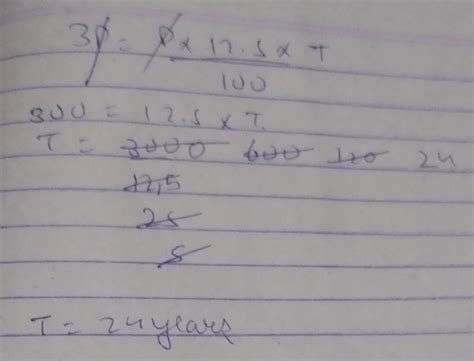 3P = P x 12.5 x T
100
300 = 12.5 x T.
T = 3000 600 120 24
12,5
25
5
T = 24 years